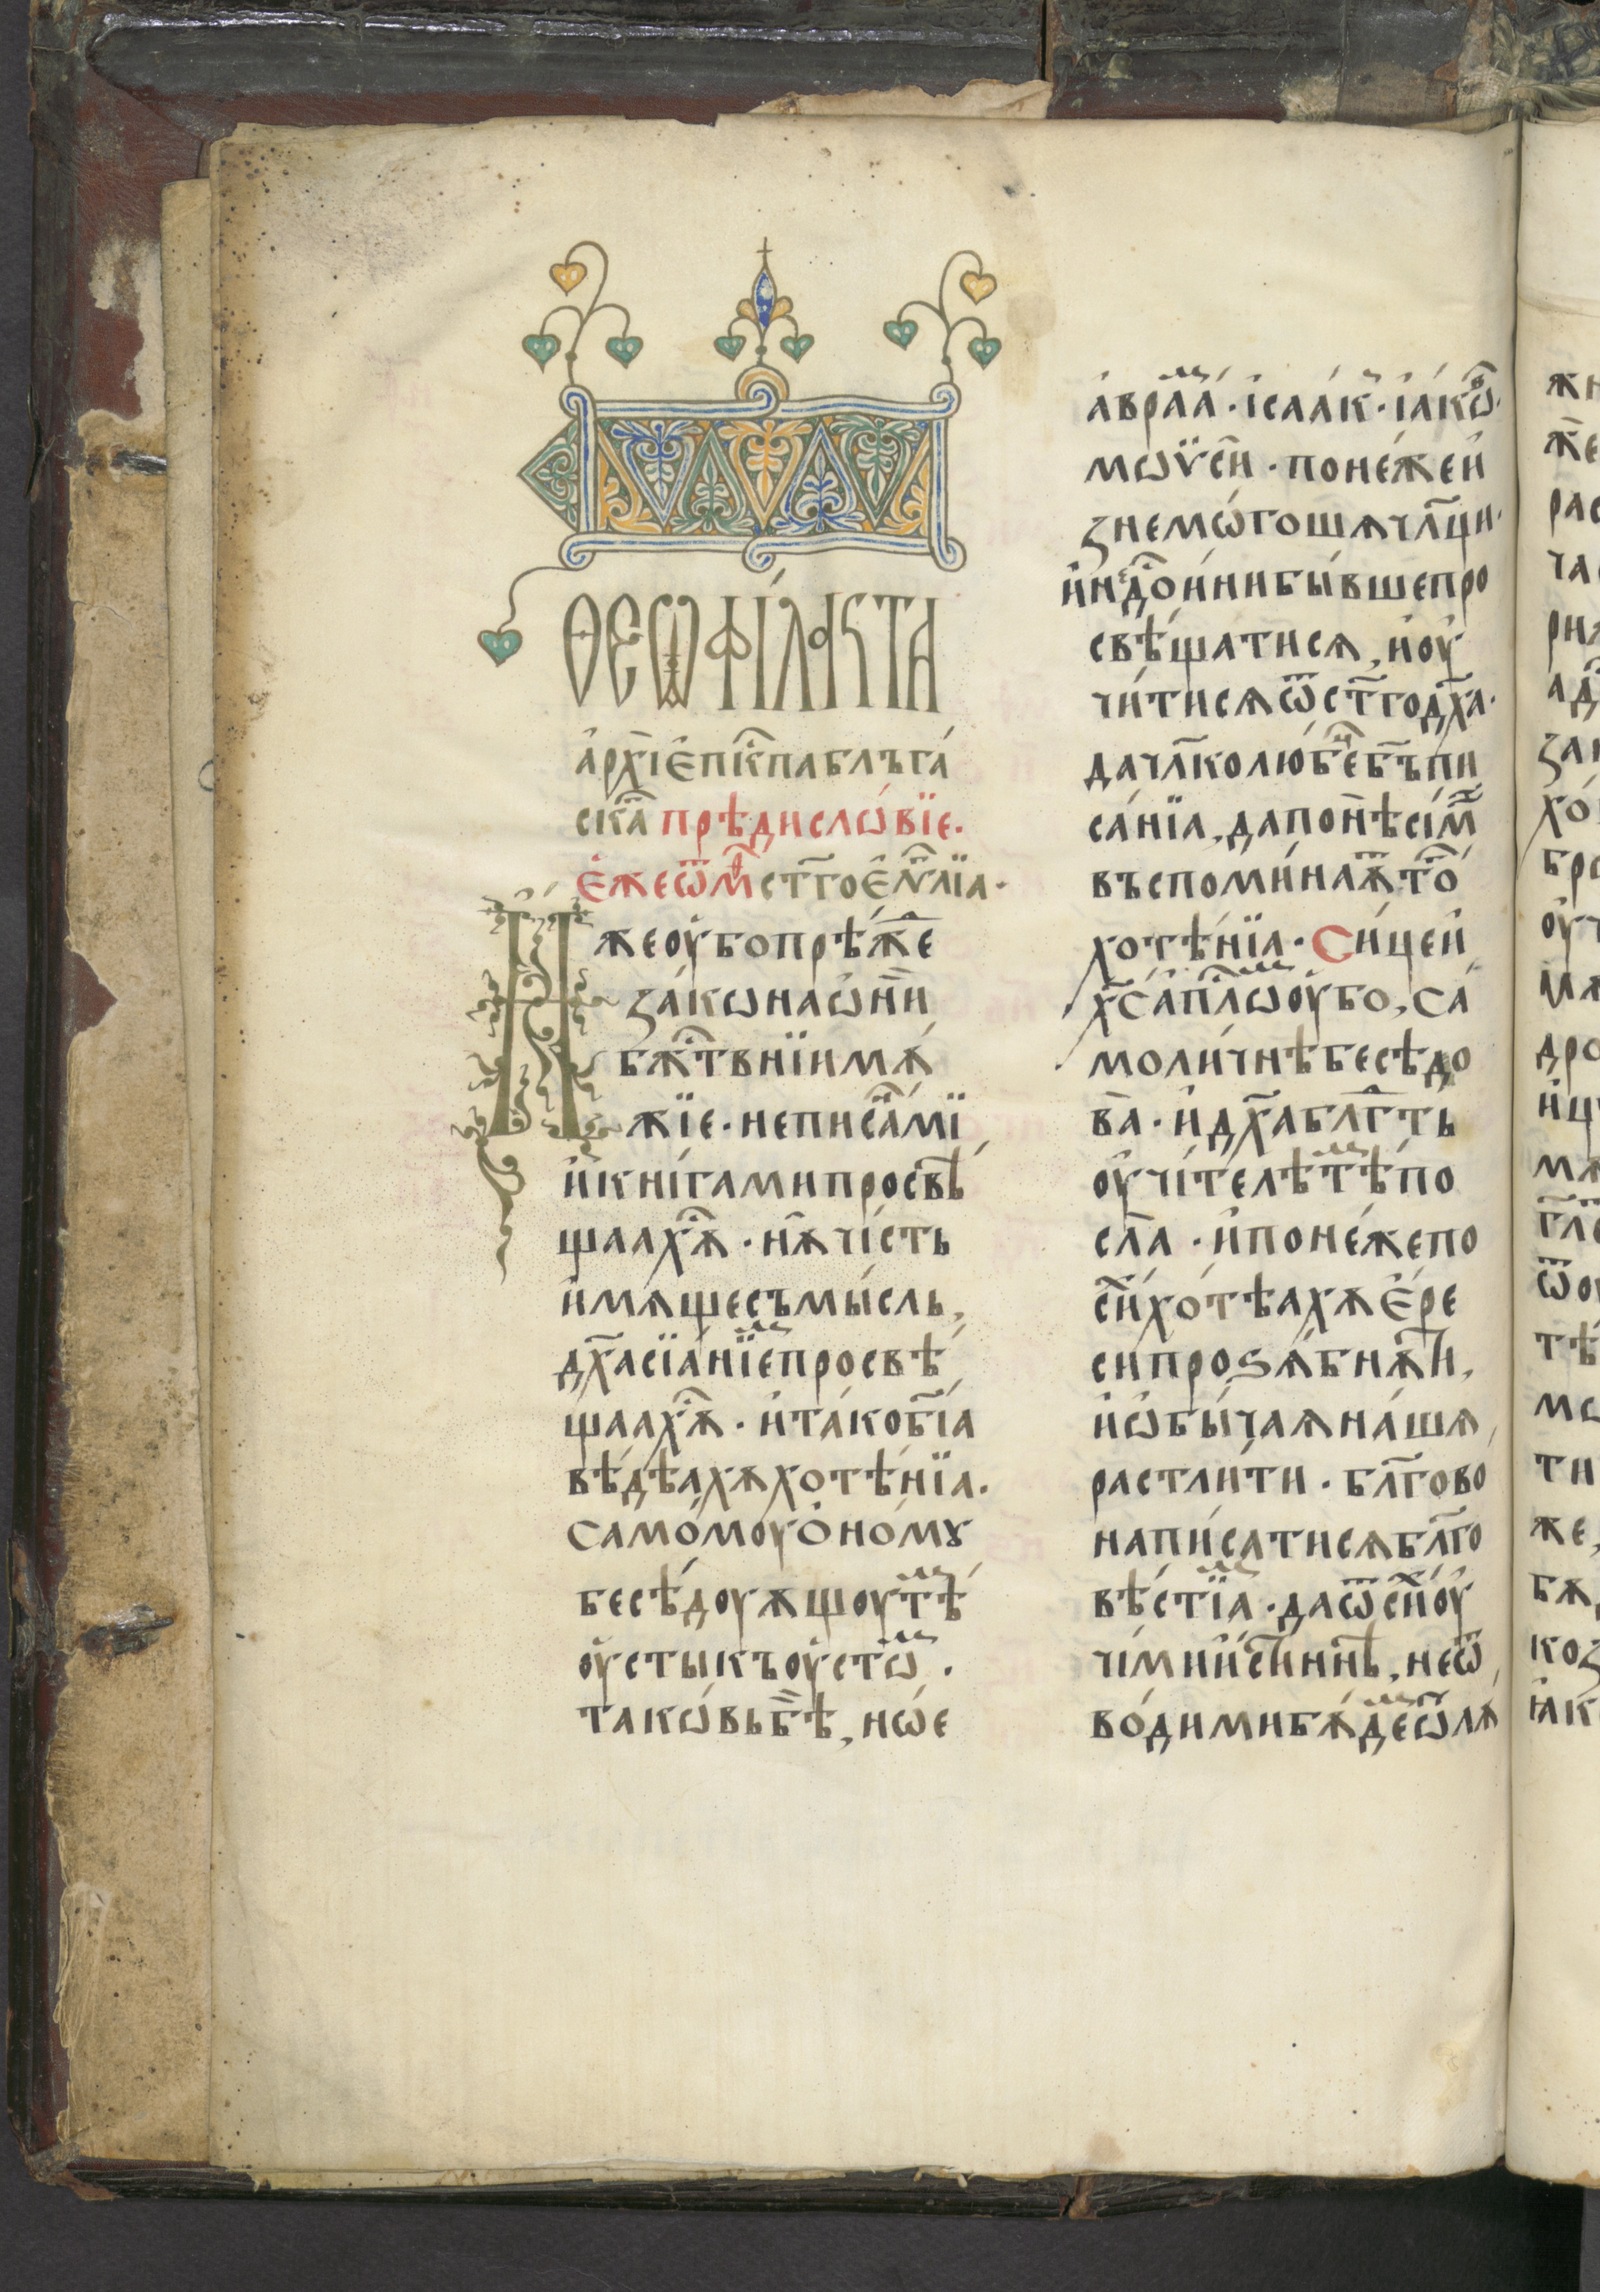 ѲЕѠФІЛАКТА
а҆рхі҆е҆пⷭ҇кпа блъга́
скⷶа прѣдисло́вїе.
е҆же ѿ маⷴ҇ ст҃го е҆ѵⷢ҇лїа·
Иже оу҆бо прѣжⷣе
зако́на ѡ҆ни
бжⷭ҇твнїи мѫ́
жїе · не писа́нⷨми
и҆ кни́гами просвѣ
щаахѫⷭ҇ · нѫ чи́сть
и҆мѫще съмы́сль,
дх҃а сїа́нїеⷨ просвѣ́
щаахѫⷭ҇ · и҆ та́ко бж҃їа
вѣ́дѣахѫ хотѣ́нїа.
Само́моу ѻ҆но́мꙋ
бесѣ́доуѫщоу тѣⷨ
оу҆сты къ оу҆стѡⷨ ·
тако́вь бⷣѣ, нѡ́е
а҆враа́ⷨ · і҆саа́к · і҆а́кѡⷡ·
мѡѷ́сн҄ · поне́же и҆
знемо́гошѫ чл҃ци·
и҆ недоⷭ҇и́ни бы́вше про
свѣ́щатисѧ, и҆ оу҆
чи́тисѧ ѿ ст҃го дх҃а·
да чл҃колюбеⷰ҇ бъ҃ пи
са́нїа, да понѣ си́мⷯ
въспомина́ѫⷮ того
хотѣ́нїа · Си́це и҆
х҃с а҆пⷭ҇лѡⷨ оу҆бо, са
моли́чнѣ бесѣдо
ва · и҆ дх҃а блгⷣть
оу҆чи́телѣ тѣⷨ по
сла · и҆ поне́же по
си́хⷯ хо́тѣахѫ е҆́ре
си проѕѧ́бнѫти,
и҆ ѻ҆бы́чаѧ на́шѧ
растли́ти · бл҃гово
напи́сатисѧ бл҃го
вѣ́стїаⷨ · да ѿ сиⷯ оу҆
чи́ми и҆́стиннѣ, не ѿ
во́дими бѫ́деⷨ ѿ лъ